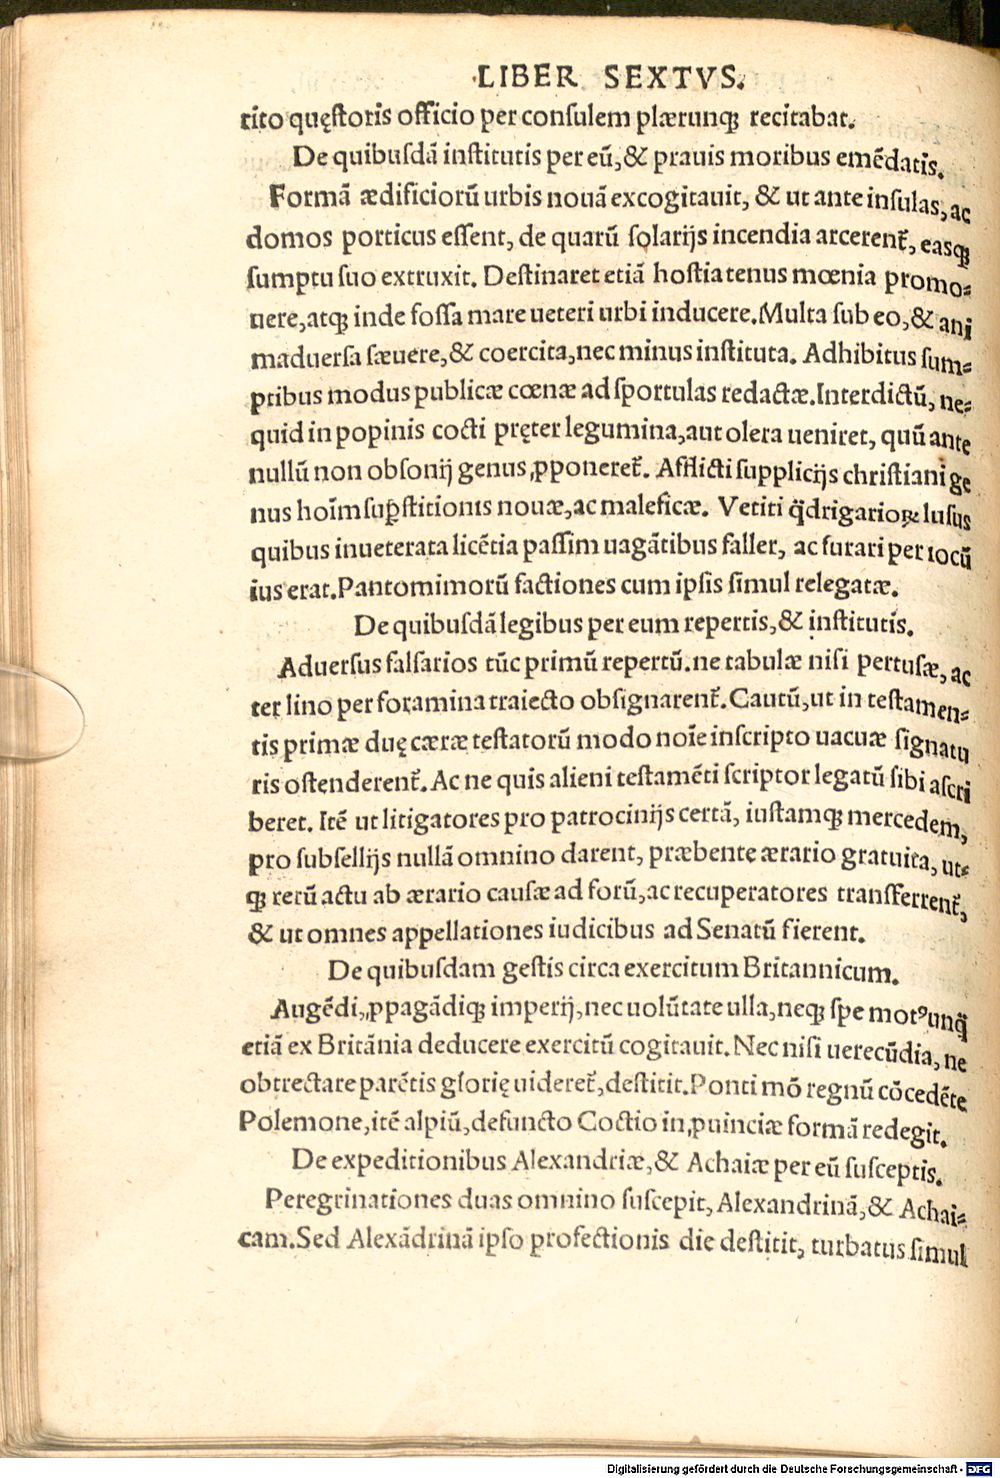 LIBER SEXTVS.
tito quęſtoris officio per conſulem plærunqꝫ recitabat.
De quibuſdā inſtitutis per eū,& prauis moribus emēdatis.
Formā ædificiorū urbis nouā excogitauit, & ut ante inſulas, ac
domos porticus eſſent, de quarū ſolarijs incendia arcerent᷑, easqꝫ
ſumptu ſuo extruxit. Deſtinaret etiā hoſtia tenus mœnia promo-
uere, atqꝫ inde foſſa mare ueteri urbi inducere. Multa ſub eo,& ani
maduerſa ſæuere,& coercita, nec minus inſtituta. Adhibitus ſum-
ptibus modus publicæ cœnæ ad ſportulas redactæ. Interdictū, ne-
quid in popinis cocti pręter legumina, aut olera ueniret, quū ante
nullū non obſonij genus ꝓponeret᷑. Afflicti ſupplicijs chriſtiani ge
nus hoīm ſuꝑſtitionis nouæ, ac maleficæ. Vetiti q̈drigarioꝝ luſus
quibus inueterata licētia paſſim uagātibus faller, ac furari per iocū
ius erat. Pantomimorū factiones cum ipſis ſimul relegatæ.
De quibuſdā legibus per eum repertis,& inſtitutis.
Aduerſus falſarios tūc primū repertū. ne tabulæ niſi pertuſæ, ac
ter lino per foramina traiecto obſignarent᷑. Cautū, ut in teſtamen-
tis primæ duę cæræ teſtatorū modo noīe inſcripto uacuæ ſignatu
ris oſtenderent᷑. Ac ne quis alieni teſtamēti ſcriptor legatū ſibi aſcri
beret. Itē ut litigatores pro patrocinijs certā, iuſtamqꝫ mercedem,
pro ſubſellijs nullā omnino darent, præbente ærario gratuita, ut-
qꝫ rerū actu ab ærario cauſæ ad forū, ac recuperatores tranſferrent᷑,
& ut omnes appellationes iudicibus ad Senatū fierent.
De quibuſdam geſtis circa exercitum Britannicum.
Augēdi, ꝓpagādiqꝫ imperij, nec uolūtate ulla, neqꝫ ſpe motꝰ unq̄
etiā ex Britānia deducere exercitū cogitauit. Nec niſi uerecūdia, ne
obtrectare parētis glorię uideret᷑, deſtitit. Ponti mō regnū cōcedēte
Polemone, itē alpiū, defuncto Coctio in ꝓuinciæ formā redegit.
De expeditionibus Alexandriæ,& Achaiæ per eū ſuſceptis.
Peregrinationes duas omnino ſuſcepit, Alexandrinā,& Achai-
cam. Sed Alexādrinā ipſo profectionis die deſtitit, turbatus ſimul
Digitalisierung gefördert durch die Deutsche Forschungsgemeinschaft - DFG